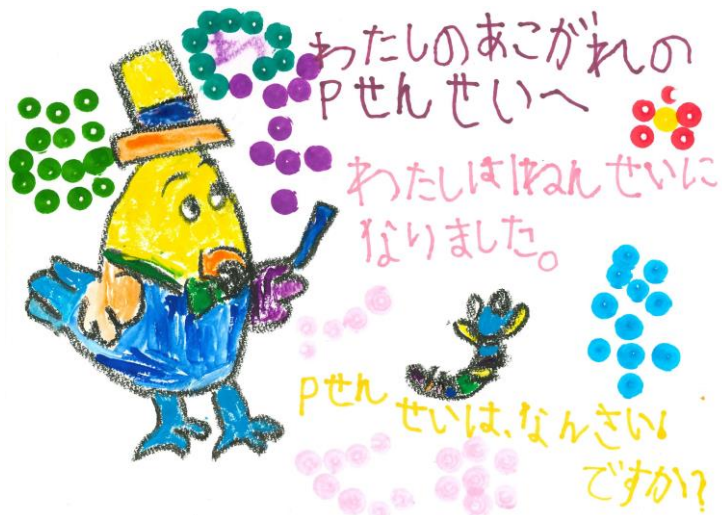 わたしのあこがれの
Pせんせいへ
わたしは1ねんせいに
なりました。
Pせん
せいは、なんさい
ですか?